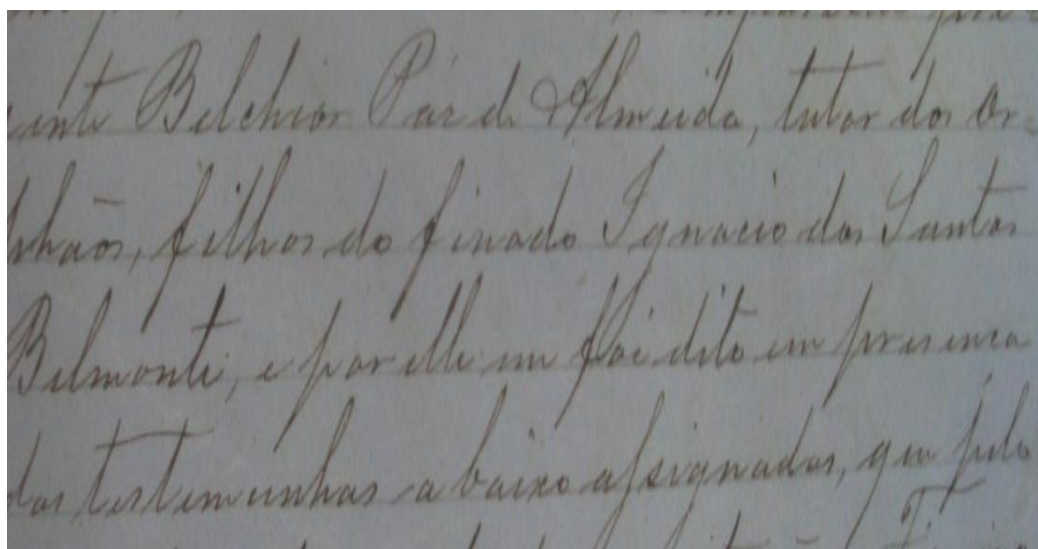 ente Belchior Paz de Almeida, tutor dos Or-
phãos, filhos do finado Ignacio dos Santos
Belmonte, e por elle me foi dito em presença
das testemunhas abaixo assignadas, que pelo